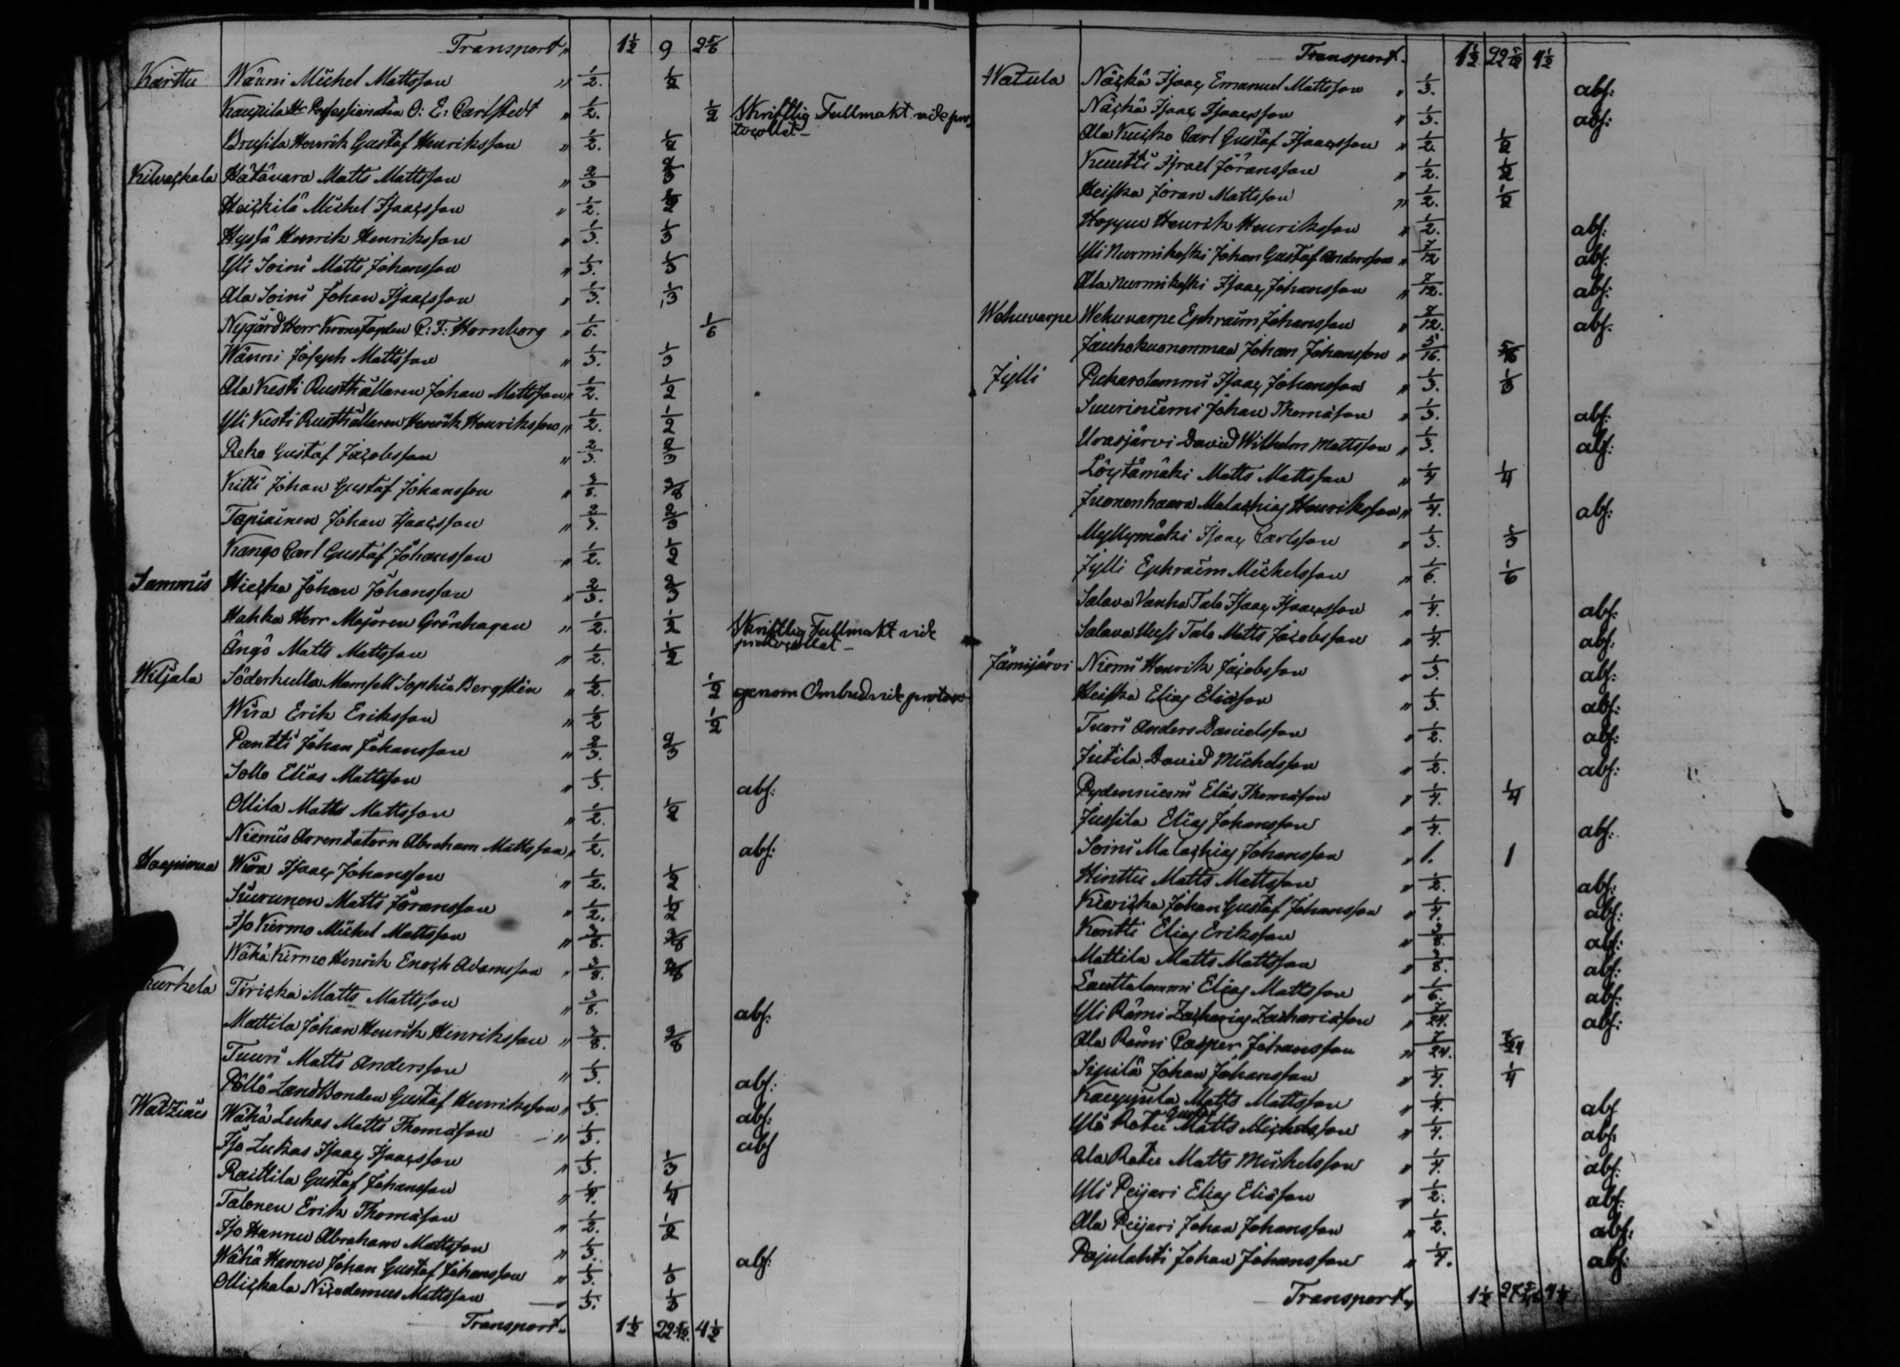 Transport „ 1½ 9 2 5/6
Kärttu Wänni Michel Mattsson „ 1/2. 1/2
Kauzila Hr Professorinnan O: E: Carlstedt „ 1/2. 1/2 Skriftlig Fullmakt vide pro
tocollet
Brusila Henrik Gustaf Henriksson „ 1/2. 1/2
Kilvaskala Hätävara Matts Mattsson „ 2/3 2/3
Heickilä Michel Isaacsson „ 1/2. 1/2
Hyssä Henrik Henriksson „ 1/3. 1/3
Yli Soini Matts Johansson „ 1/3. 1/3
Ala Soini Johan Isaacsson „ 1/3. 1/3
Nygård Herr Kronofogden C: F: Hornborg „ 1/6. 1/6
Wänni Joseph Mattsson „ 1/3. 1/3
Ala Kesti Rusthållaren Johan Mattsson „ 1/2. 1/2
Yli Kesti Rusthållaren Henrik Henriksson „ 1/2. 1/2
Reko Gustaf Jacobsson „ 2/3. 2/3
Kitti Johan Gustaf Johansson „ 3/8. 3/8
Tapiainen Johan Isaacsson „
Kango Carl Gustaf Johansson „ 1/2. 1/2
Sammus Hiecka Johan Johansson „ 2/3. 2/3
Hahka Herr Majoren Grönhagen „ 1/2. 1/2 Skriftlig Fullmakt vide
protocollet
Ängö Matts Mattsson „ 1/2. 1/2
Wiljala Söderhulla Mamsell Sophia Bergstén „ 1/2. 1/2 genom Ombud vide protoco
Wira Erik Eriksson „ 1/2 1/2
Pantti Johan Johansson „ 2/3. 2/3
Sollo Elias Mattsson „ 1/3. abs:
Ollila Matts Mattsson „ 1/2. 1/2
Niemis Arrendatorn Abraham Mattsson „ 1/2. abs:
Haapimaa Wira Isaac Johansson „ 1/2. 1/2
Kuurunen Matts Göransson „ 1/2. 1/2
Iso Kiermo Michel Mattsson „ 3/8. 3/8
Wähä Kiermo Henrik Enoch Adamsson „ 3/8. 3/8
Kurkela Tiricka Matts Mattsson „ 3/8. abs:
Mattila Johan Henrik Henriksson „ 3/8. 3/8
Tuuri Matts Andersson „ 1/3. abs:
Pöllö Landbonden Gustaf Henriksson „ 1/3. abs:
Watziais Wähä Lukas Matts Thomasson „ 1/3. abs
Iso Lukas Isaac Isaacsson „ 1/3. 1/3
Raittila Gustaf Johansson „ 1/4. 1/4
Talonen Erik Thomasson „ 1/2. 1/2
Iso Hannu Abraham Mattsson „ 1/3. abs:
Wähä Hannu Johan Gustaf Johansson „ 1/3. 1/3
Ollickala Nicodemus Mattsson „ 1/3. 1/3
Transport „ 1½ 22 4½
Transport „ 1½ 22 4½
Watula Näckä Isaac Emanuel Mattsson „ 1/3. abs:
Näckä Isaac Isaacsson „ 1/3. abs:
Ala Kuicko Carl Gustaf Isaacsson „ 1/2. 1/2
Knutti Israel Jöransson „ 1/2. 1/2
Heiska Jöran Mattsson „ 1/2. 1/2
Hoppu Henrik Henriksson „ 1/2. abs:
Yli Nurmikoski Johan Gustaf Andersson „ 7/12 abs:
Ala Nurmikoski Isaac Johansson „ 7/12. abs:
Wehuvarpe Wehuvarpe Ephraim Johansson „ 7/12. abs:
Jauhokuononmaa Johan Johansson „ 5/16. 5/16
Jylli Rickarolammi Isaac Johansson „ 1/3. 1/3
Suuriniemi Johan Thomasson „ 1/3. abs:
Uvasjärvi David Wilhelm Mattsson „ 1/3. abs:
Löytämäki Matts Mattsson „ 1/4 1/4
Juonenhaara Malachias Henriksson „ 1/4. abs:
Myllymäki Isaac Carlsson „ 1/3. 1/3
Jylli Ephraim Michelsson „ 1/6. 1/6
Salava Vanha Talo Isaac Isaacsson „ 1/4. abs:
Salava Uusi Talo Matts Jacobsson „ 1/4. abs:
Jämijärvi Niemi Henrik Jacobsson „ 1/3. abs:
Heiska Elias Eliasson „ 1/3. abs:
Tuori Anders Danielsson „ 1/2. abs:
Jutila David Michelsson „ 1/2. abs:
Pydenniemi Elias Thomasson „ 1/4. 1/4
Jussila Elias Johansson „ 1/4. abs:
Soini Malachias Johansson „ 1. 1
Hinttu Matts Mattsson „ 1/2. abs:
Kiericka Johan Gustaf Johansson „ 1/4. abs:
Kontti Elias Eriksson „ 3/8. abs:
Mattila Matts Mattsson „ 3/8. abs:
Lauttalammi Elias Mattsson „ 1/6. abs:
Yli Rämi Zacharias Zachariasson „ 7/24. abs:
Ala Rämi Casper Johansson „ 7/24. 7/24
Sipilä Johan Johansson „ 1/4. 1/4
Kauppila Matts Mattsson „ 1/4. abs
Yli Ratu Gustaf Matts Michelsson „ 1/4. abs
Ala Ratu Matts Michelsson „ 1/4. abs:
Yli Peijari Elias Eliasson „ 1/2. abs:
Ala Peijari Johan Johansson „ 1/2. abs:
Pajulahti Johan Johansson „ 1/4. abs:
Transport „ 1½ 4½